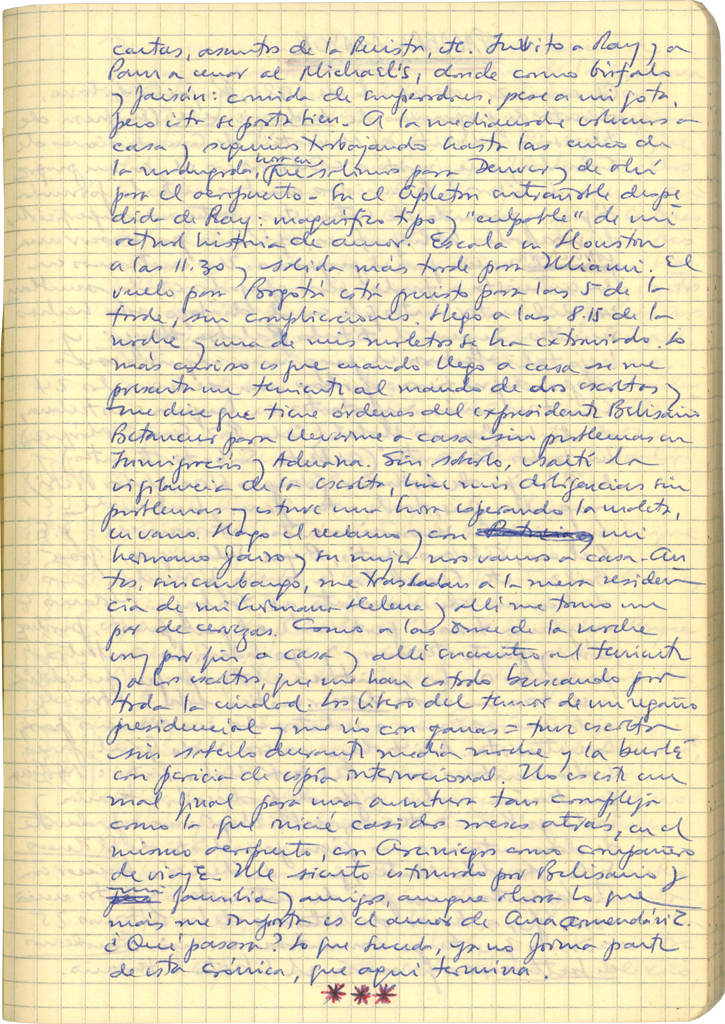 cartas, asuntos de la Revista, etc. Invito a Ray y a
Pam a cenar al Michael's, donde como búfalo
y faisán: comida de emperadores, pese a mi gota,
pero ésta se porta bien. A la medianoche volvemos a
casa y seguimos trabajando hasta las cinco de
la madrugada, hora en que salimos para Denver y de ahí
para el aeropuerto – En el entrañable despe
dida de Ray: magnífico tipo y "culpable" de mi
actual historia de amor. Escala en Houston
a las 11.30 y salida más tarde para Miami. El
vuelo para Bogotá está previsto para las 5 de la
tarde, sin complicaciones. Llego a las 8.15 de la
noche y una de mis maletas se ha extraviado. Lo
más curioso es que cuando llego a casa se me
presenta un teniente al mando de dos escoltas y
me dice que tiene órdenes del expresidente Belisario
Betancur para llevarme a casa sin problemas en
Inmigración y Aduana. Sin saberlo, burlé la
vigilancia de la escolta, hice mis diligencias sin
problemas y estuve una hora esperando la maleta,
en vano. Hago el reclamo y con mi
hermano Jairo y su mujer nos vamos a casa. An
tes, sin embargo, me trasladan a la nueva residen
cia de mi hermana Helena y allí me tomo un
par de cervezas. Como a las once de la noche
voy por fin a casa y allí encuentro al teniente
y a los escoltas, que me han estado buscando por
toda la ciudad. Los libero del temor de un regaño
presidencial y me río con ganas = tuve escolta
sin saberlo durante media noche y la burlé
con pericia de espía internacional. No es este un
mal final para una aventura tan compleja
como la que inicié casi dos meses atrás, en el
mismo aeropuerto, con Arciniegas como compañero
de viaje. Me siento estimado por Belisario y
mi familia y amigos, aunque ahora lo que
más me importa es el amor de Ana
¿Qué pasará? Lo que suceda, ya no forma parte
de esta crónica, que aquí termina.
***